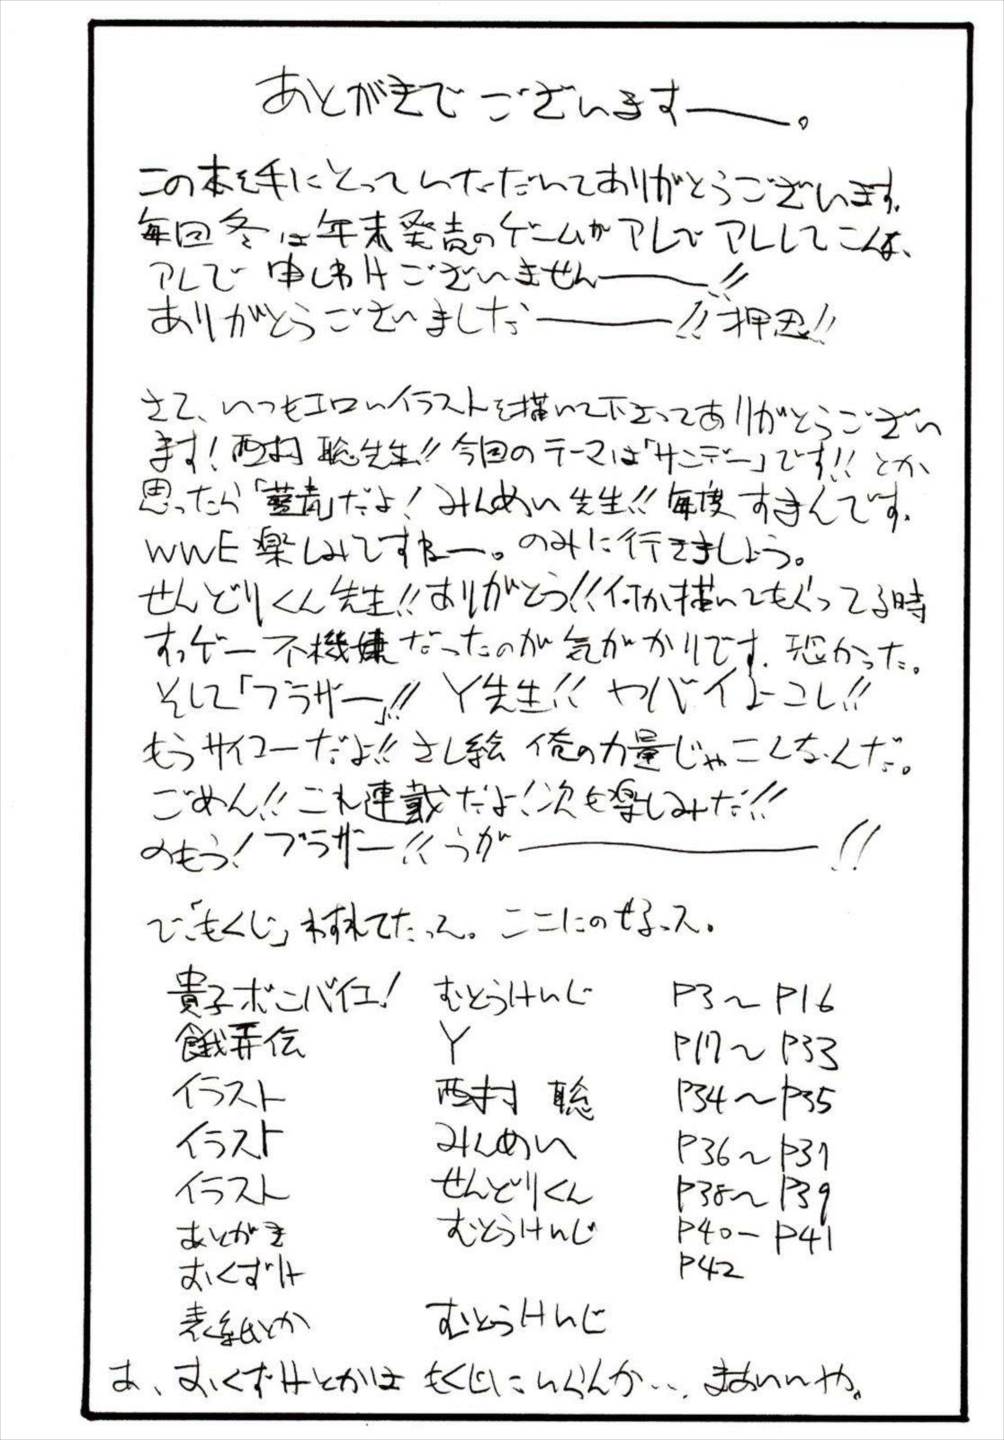 あとがきでございますー。
この本を手にとっていただいてありがとうございます。
毎回冬は年末発売のゲームがアレでアレしてこんな、
アレで申しわけございませんー!!
ありがとうございましたー!!押忍!!
さて、いつもエロいイラストを描いて下さってありがとうござい
ます!西村聡先生!!今回のテーマは「サンデー」です!!とか
思ったら「藍青」だよ!みんめい先生!!毎度すまんです。
WWE楽しみですねー。のみに行きましょう。
せんどりくん先生!!ありがとう!!何か描いてもらってる時
すっげー不機嫌だったのが気がかりです。恐かった。
そして「ブラザー」!!Y先生!!ヤバイよコレ!!
もうサイコーだよ!!さし絵俺の力量じゃこんなんだ。
ごめん!!これ連載だよ!次も楽しみだ!!
のもう!ブラザー!!うがー!!
で「もくじ」わすれてたっス。ここにのせるっス。
貴子ボンバイエ! むとうけいじ P3〜P16
餓弄伝 Y P17〜P33
イラスト 西村 聡 P34〜P35
イラスト みんめい P36〜P37
イラスト せんどりくん P38〜P39
あとがき むとうけいじ P40ーP41
おくずけ P42
表紙とか むとうけいじ
あ、おくずけとかはもくじにいらんか…、まあいいや。